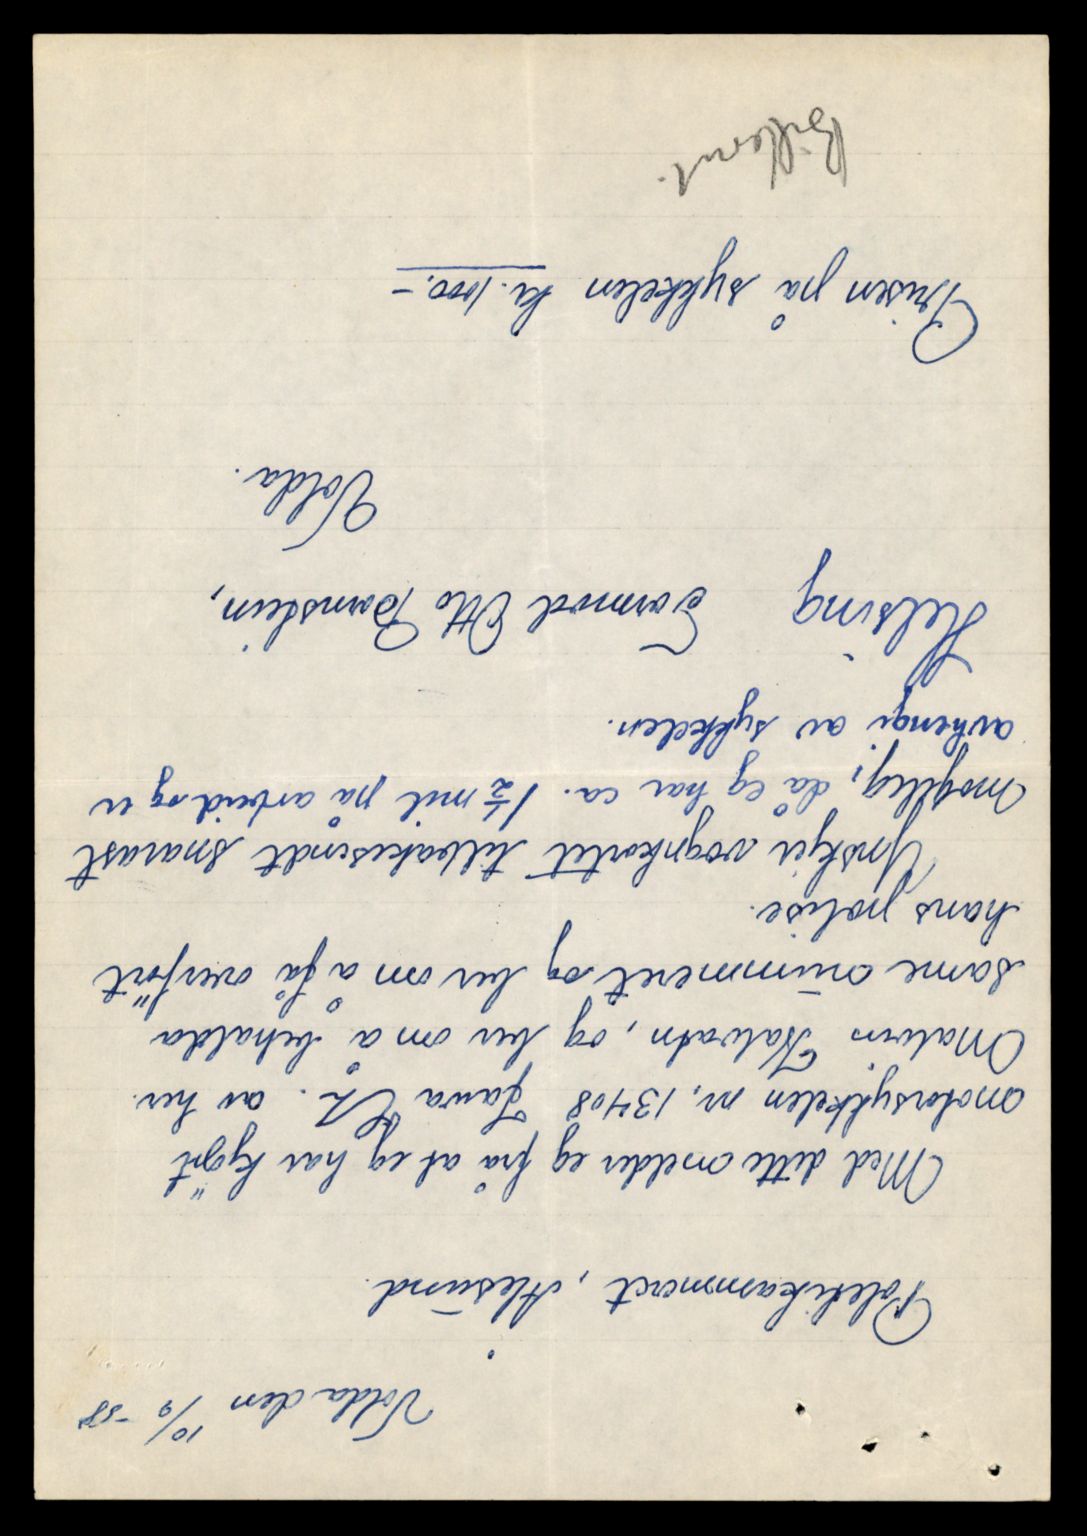 Volda den 10/9 -58
Politikammeret, Ålesund.
Med dette melder eg frå at eg har kjøpt
motorsykkelen nr. 13408 Jawa av hr.
Malvin Kalvatn, og ber om å behalda
same nummeret og ber om å få overført
hans polise.
Ynskjer vognkortet tilbakesendt snarast
mogleg, då eg har ca. 1 1/2 mil på arbeid og er
avhengi av sykkelen.
Helsing Tormod Otto Barnstein,
Volda.
Prisen på sykkelen kr. 1000.-